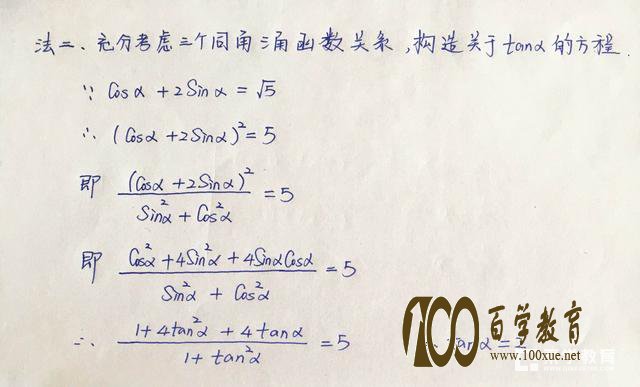 法二、充分考虑三个同角三角函数关系,构造关于tanα的方程.
∵ Cosα + 2Sinα = √5
∴ (Cosα + 2Sinα)² = 5
即 (Cosα + 2Sinα)² / Sin²α + Cos²α = 5
即 Cos²α + 4Sin²α + 4SinαCosα / Sin²α + Cos²α = 5
∴ 1 + 4tan²α + 4tanα / 1 + tan²α = 5
tanα = 2
100 百学教育
www.100xue.net